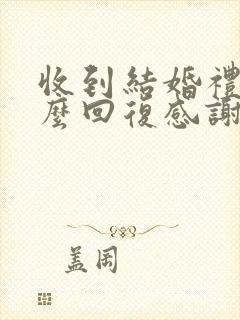 收到結婚禮
麼回復感謝
蓋罔